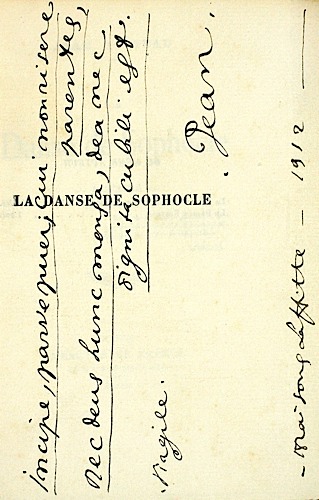 LA DANSE DE SOPHOCLE
Incipe, parve puer, cui non risere
parentes,
Nec deus hunc mensa, dea nec
dignata cubili est.
Virgile.
Jean.
— Maisons Laffitte — 1912 —